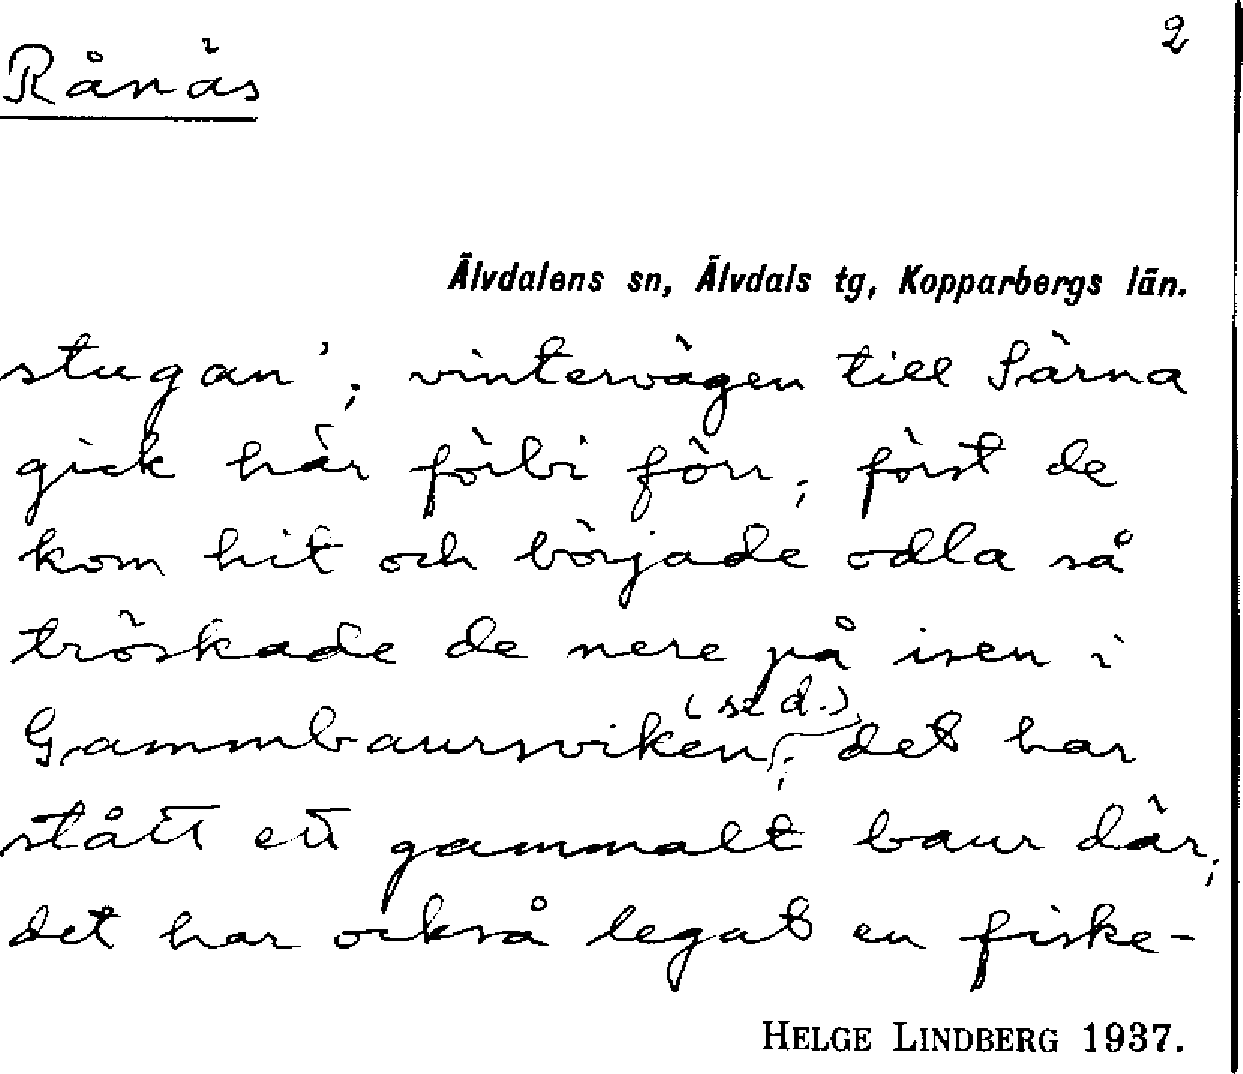 2
Rånäs
Älvdalens sn, Älvdals tg, Kopparbergs län.
stugan'; vintervägen till Särna
gick här förbi förr; först de
kom hit och började odla så
tröskade de nere på isen i
(std.)
Gammbaursviken; det har
stått ett gammalt baur där;
det har också legat en fiske-
HELGE LINDBERG 1937.